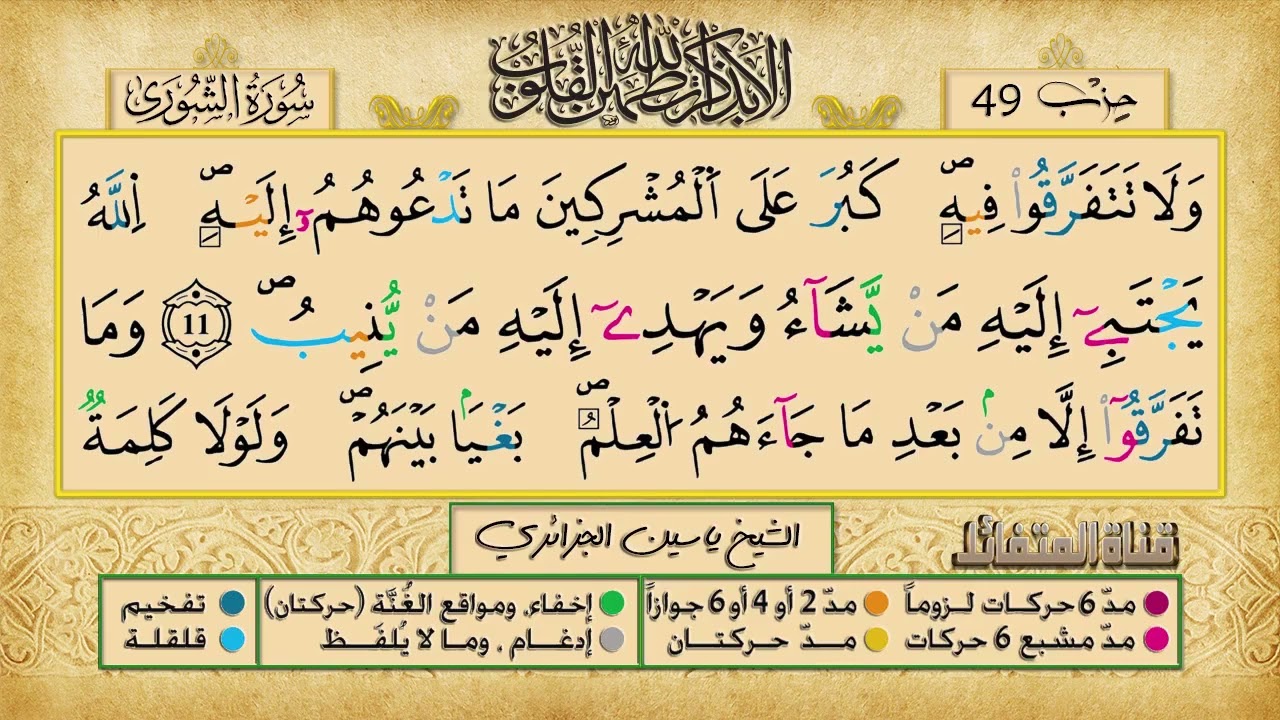 حِزْب 49
أَلَا بِذِكْرِ اللَّهِ تَطْمَئِنُّ الْقُلُوبُ
سُورَةُ الشُّورَى
وَلَا تَتَفَرَّقُواْ فِيهِۖ كَبُرَ عَلَى اَ۬لْمُشْرِكِينَ مَا تَدْعُوهُمُۥٓ إِلَيْهِۖ اِ۬للَّهُ
يَجْتَبِےٓ إِلَيْهِ مَنْ يَّشَآءُ وَيَهْدِےٓ إِلَيْهِ مَنْ يُّنِيبُۖ 11 وَمَا
تَفَرَّقُوٓاْ إِلَّا مِنۢ بَعْدِ مَا جَآءَهُمُ اُ۬لْعِلْمُ بَغْيَاۢ بَيْنَهُمْۖ وَلَوْلَا كَلِمَةٞ
الشيخ ياسين الجزائري
قناة المتفائل
مدّ 6 حركات لـزوماً مدّ 2 أو 4 أو 6 جوازاً إخفاء، ومواقع الغُنَّة (حركتان) تفخيم
مدّ مشبع 6 حركات مـدّ حركتـان إدغام ، ومـا لا يُلفَـظ قلقلة